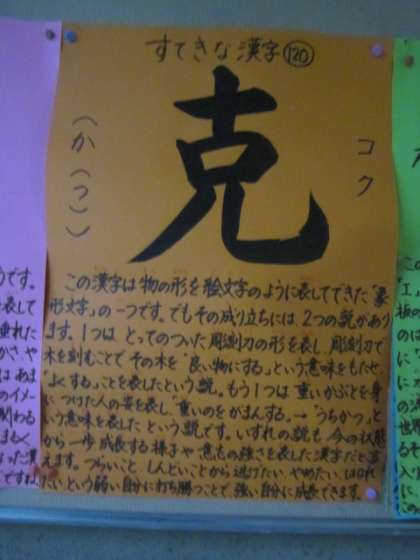 すてきな漢字 120
克
コク
(か(つ))
この漢字は物の形を絵文字のように表してできた「象
形文字」の一つです。でもその成り立ちには、2つの説があり
ます。1つは とってのついた彫刻刀の形を表し、彫刻刀で
木を刻むことで その木を「良い物にする」という意味をもたせ
「よくする」ことを表したという説。もう1つは 重いかぶとを身
につけた人の姿を表し「重いのをがまんする」→「うちかつ」と
いう意味を表した という説です。いずれの説も 今の状態
から一歩 成長する様子や意志の強さを表した漢字だと言
えます。つらいこと しんどいことから逃げたい やめたい はなれ
たいという弱い自分に打ち勝つことで、強い自分に成長できます。